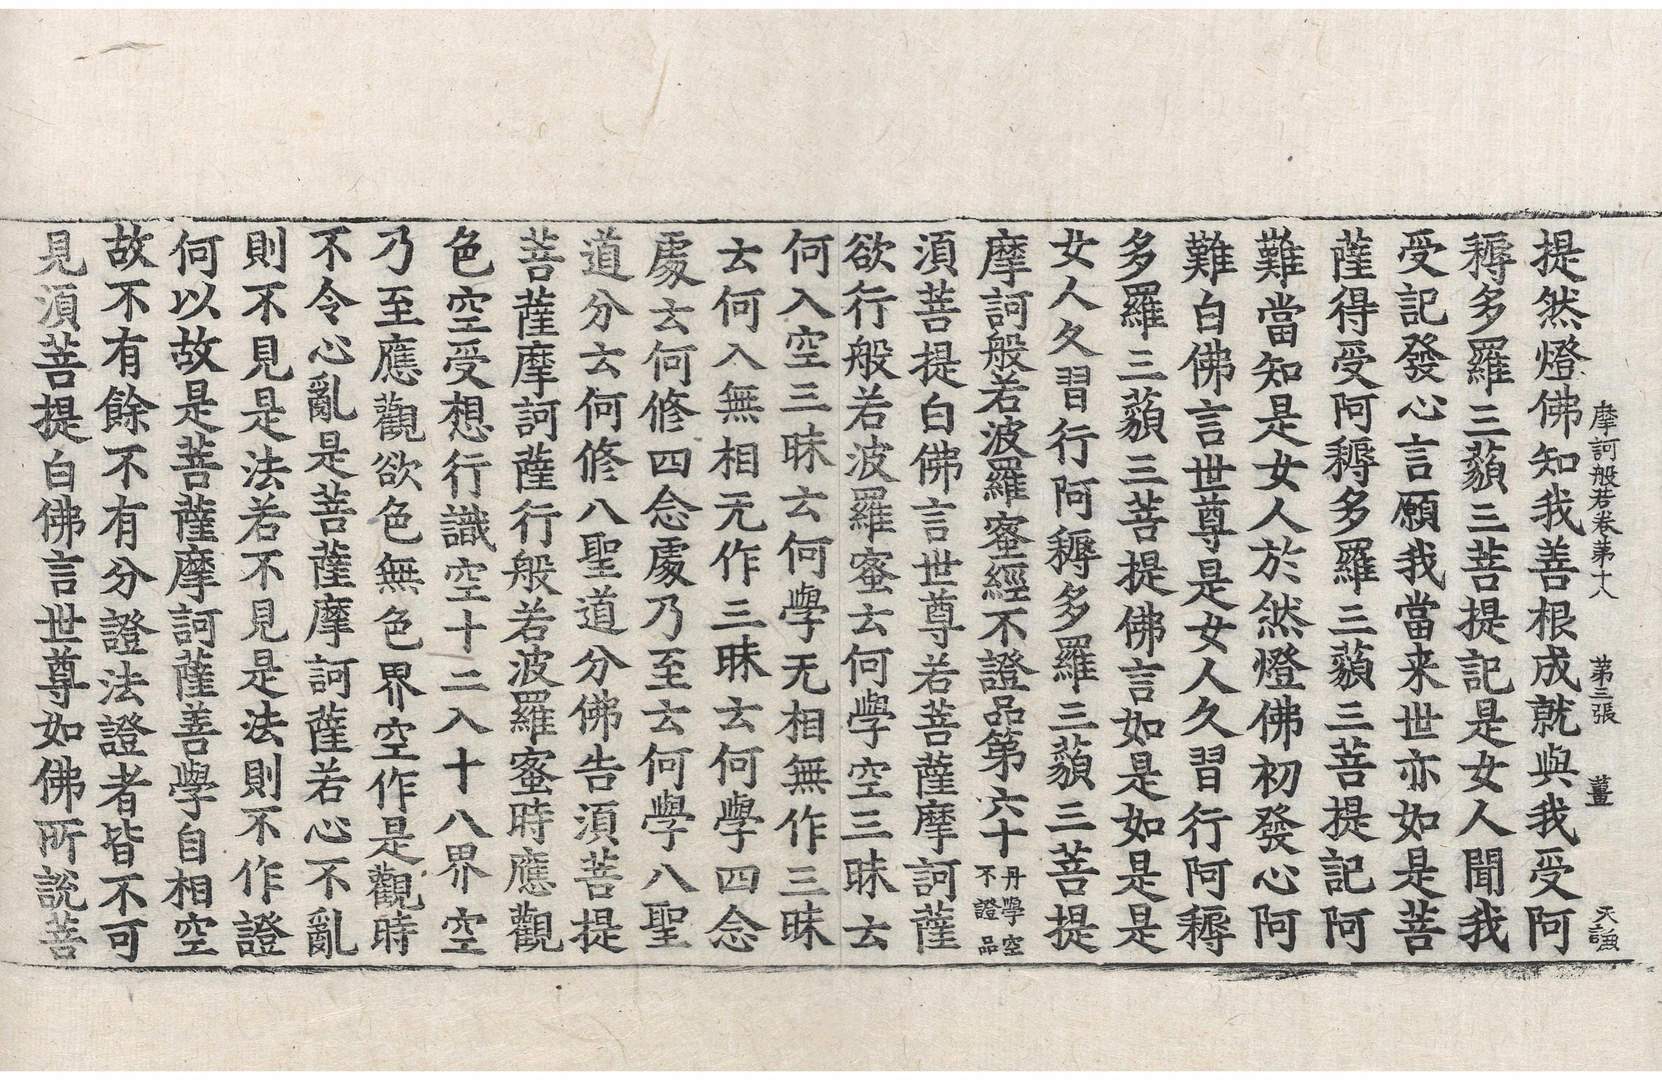 摩訶般若卷第十八 第三張 薑 天諭
提然燈佛知我善根成就與我受阿
耨多羅三藐三菩提記是女人聞我
受記發心言願我當来世亦如是菩
薩得受阿耨多羅三藐三菩提記阿
難當知是女人於然燈佛初發心阿
難白佛言世尊是女人久習行阿耨
多羅三藐三菩提佛言如是如是是
女人久習行阿耨多羅三藐三菩提
摩訶般若波羅蜜經不證品第六十 丹學空不證品
須菩提白佛言世尊若菩薩摩訶薩
欲行般若波羅蜜云何學空三昧云
何入空三昧云何學无相無作三昧
云何入無相无作三昧云何學四念
處云何修四念處乃至云何學八聖
道分云何修八聖道分佛告須菩提
菩薩摩訶薩行般若波羅蜜時應觀
色空受想行識空十二入十八界空
乃至應觀欲色無色界空作是觀時
不令心亂是菩薩摩訶薩若心不亂
則不見是法若不見是法則不作證
何以故是菩薩摩訶薩善學自相空
故不有餘不有分證法證者皆不可
見須菩提白佛言世尊如佛所說菩